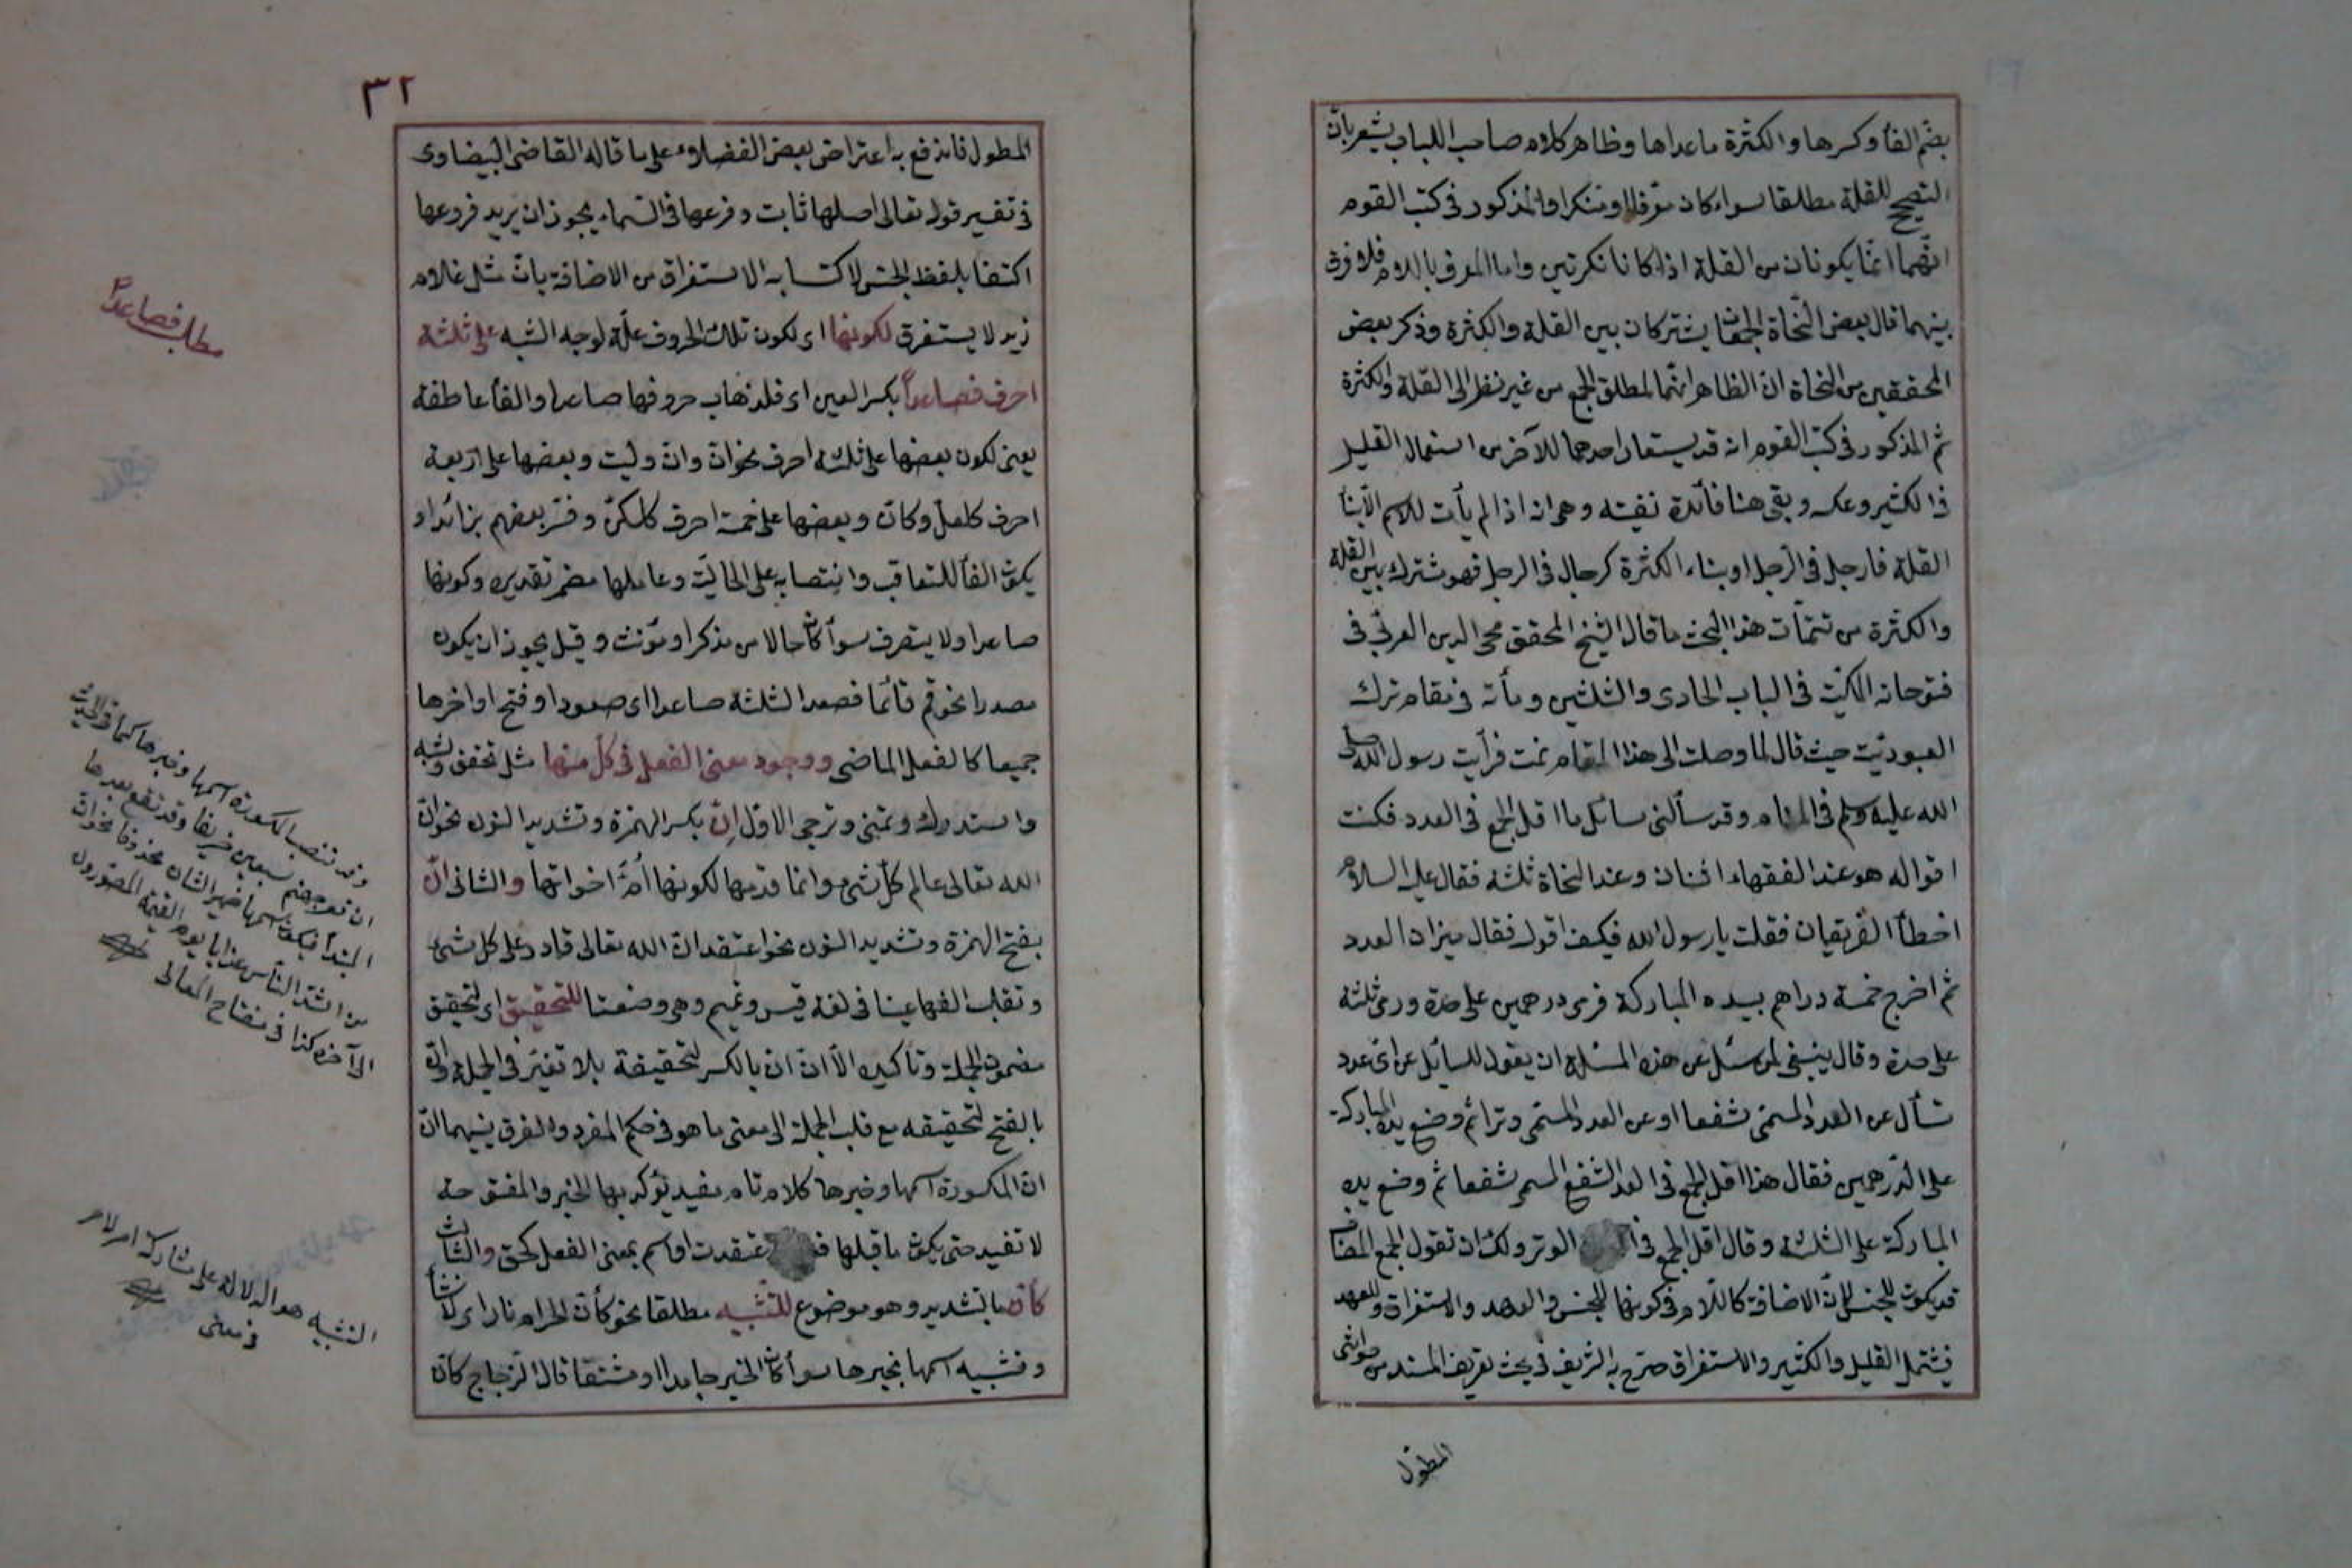 بضم الفأ وكسرها والكثرة ما عداها وظاهر كلام صاحب اللباب يشعر بان
التصحيح للقلة مطلقا سواء كان معرفا او منكرا والمذكور فى كتب القوم
انهما انما يكونان من القلة اذا كانا نكرتين واما المعرف باللام فلا فرق
بينهما قال بعض النحاة الجمعان يشتركان بين القلة والكثرة وذكر بعض
المحققين من النحاة ان الظاهر انهما لمطلق الجمع من غير نظر الى القلة والكثرة
ثم المذكور فى كتب القوم انه قد يستعار احدهما للآخر من استعمال القليل
فى الكثير وعكسه وبقى هنا فائدة نفيسة وهى انه اذا لم يأت للاسم الا بنأ
القلة فارجل فى الرجل او بناء الكثرة كرجال فى الرجل فهو مشترك بين القلة
والكثرة من تتمات هذا البحث ما قال الشيخ المحقق محى الدين العربى فى
فتوحاته المكية فى الباب الحادى والثلثين ومأة فى مقام ترك
العبودية حيث قال لما وصلت الى هذا المقام نمت فرأيت رسول الله صلى
الله عليه وسلم فى المنام وقد سألنى سائل ما اقل الجمع فى العدد فكنت
اقول له هو عند الفقهاء اثنان وعند النحاة ثلثة فقال عليه السلام
اخطأ الفريقان فقلت يا رسول الله فكيف اقول فقال ميز ان العدد
ثم اخرج خمسة دراهم بيده المباركة فرمى درهمين على حدة ورمى ثلثة
على حدة وقال ينبغى لمن سئل عن هذه المسئلة ان يقول للسائل عن اى عدد
تسأل عن العدد المسمى شفعا او عن العدد المسمى وترا ثم وضع يده المباركة
على الدرهمين فقال هذا اقل الجمع فى العدد الشفع المسمى شفعا ثم وضع يده
المباركة على الثلثة وقال اقل الجمع فى الوتر ولك ان تقول الجمع المضاف
قد يكون للجنس لان الاضافة كاللام فى كونها للجنس والعهد والاستغراق وللعهد
فيشتمل القليل والكثير والاستغراق صرح به الشريف فى بحث تعريف المسند من حواشى
المطول
٣٢
المطول فاندفع به اعتراض بعض الفضلاء على ما قاله القاضى البيضاوى
فى تفسير قوله تعالى اصلها ثابت وفرعها فى السماء يجوز ان يريد فروعها
اكتفا بلفظ الجنس لاكتسابه الاستغراق من الاضافة بان مثل غلام
زيد لا يستغرق لكونها اى لكون تلك الحروف علة لوجه الشبه على ثلثة
احرف فصاعدا بكسر العين اى فلذهاب حروفها صاعدا والفأ عاطفة
يعنى لكون بعضها على ثلثة احرف نحو ان وان وليت وبعضها على اربعة
احرف كلعل وكان وبعضها على خمسة احرف كلكن وفسر بعضهم بزائدا و
يكون الفأ للتعاقب وانتصابه على الحالية وعاملها مضمر تقديره وكونها
صاعدا ولا يتصرف سوأ كان حالا من مذكر او مؤنث وقيل يجوز ان يكون
مصدرا نحو قم قائما فصعد الثلثة صاعدا اى صعودا وفتح اواخرها
جميعا كالفعل الماضى ووجود معنى الفعل فى كل منها مثل تحقق وشبه
واستدرك وتمنى وترجى الاول ان بكسر الهمزة وتشديد النون نحو ان
الله تعالى عالم كل شىء وانما قدمها لكونها ام اخواتها والثانى ان
بفتح الهمزة وتشديد النون نحو اعتقد ان الله تعالى قادر على كل شىء
وتقلب الفها عينا فى لغة قيس وتميم وهى وضعتا للتحقيق اى لتحقيق
مضمون الجملة وتأكيده الا ان ان بالكسر لتحقيقة بلا تغير فى الجملة وان
بالفتح لتحقيقه مع قلب الجملة الى معنى ما هو فى حكم المفرد والفرق بينهما ان
ان المكسورة اسمها وخبرها كلام تام مفيد تؤكد بها الخبر والمفتوحة
لا تفيد حتى يكون ما قبلها اعتقدت او اسم بمعنى الفعل كحق والثالث
كأن بالتشديد وهو موضوع للتشبيه مطلقا نحو كأن الحرام نار اى لانشأ
وتشبيه اسمها بخبرها سوأ كان الخبر جامدا او مشتقا قال الزجاج كان
مطلب فصاعدا
وقد تنصب المكسورة اسمها وخبرها كما فى الحديث
ان قعر جهنم سبعين خريفا وقد تقع بعدها
المبتدأ فيكون اسمها ضمير الشان محذوفا نحو ان
من اشد الناس عذابا يوم القيمة المصورون
الى آخره كذا فى مفتاح المعانى
التشبيه هو الدلالة على مشاركة امر لامر
فى معنى